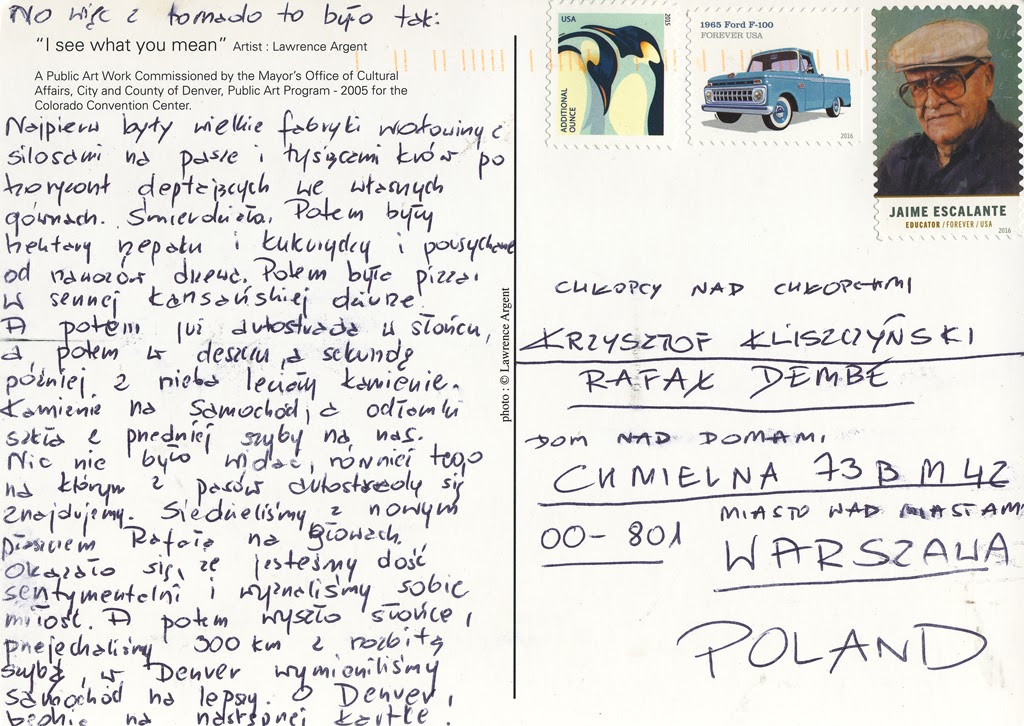 No więc z tornado to było tak:
"I see what you mean" Artist : Lawrence Argent
A Public Art Work Commissioned by the Mayor's Office of Cultural
Affairs, City and County of Denver, Public Art Program - 2005 for the
Colorado Convention Center.
Najpierw były wielkie fabryki wołowiny z
silosami na paszę i tysiącami krów po
horyzont depczących we własnych
gównach. Śmierdziało. Potem były
hektary rzepaku i kukurydzy i powysychane
od nawozów drzewa. Potem była pizza
w sennej kansańskiej dziurze.
A potem już autostrada w słońcu,
a potem w deszczu, a sekundę
później z nieba leciały kamienie.
Kamienie na samochód, a odłamki
szkła z przedniej szyby na nas.
Nic nie było widać, również tego
na którym z pasów autostrady się
znajdujemy. Siedzieliśmy z nowym
płaszczem Rafała na głowach.
Okazało się, że jesteśmy dość
sentymentalni i wyznaliśmy sobie
miłość. A potem wyszło słońce,
przejechaliśmy 300 km z rozbitą
szybą, w Denver wymieniliśmy
samochód na lepszy. O Denver,
będzie na następnej kartce.
photo : © Lawrence Argent
USA
2015
ADDITIONAL OUNCE
1965 Ford F-100
FOREVER USA
2016
JAIME ESCALANTE
EDUCATOR / FOREVER / USA
2016
CHŁOPCY NAD CHŁOPCAMI
KRZYSZTOF KLISZCZYŃSKI
RAFAŁ DEMBE
DOM NAD DOMAMI
CHMIELNA 73 B M 42
MIASTO NAD MIASTAMI
00-801
WARSZAWA
POLAND